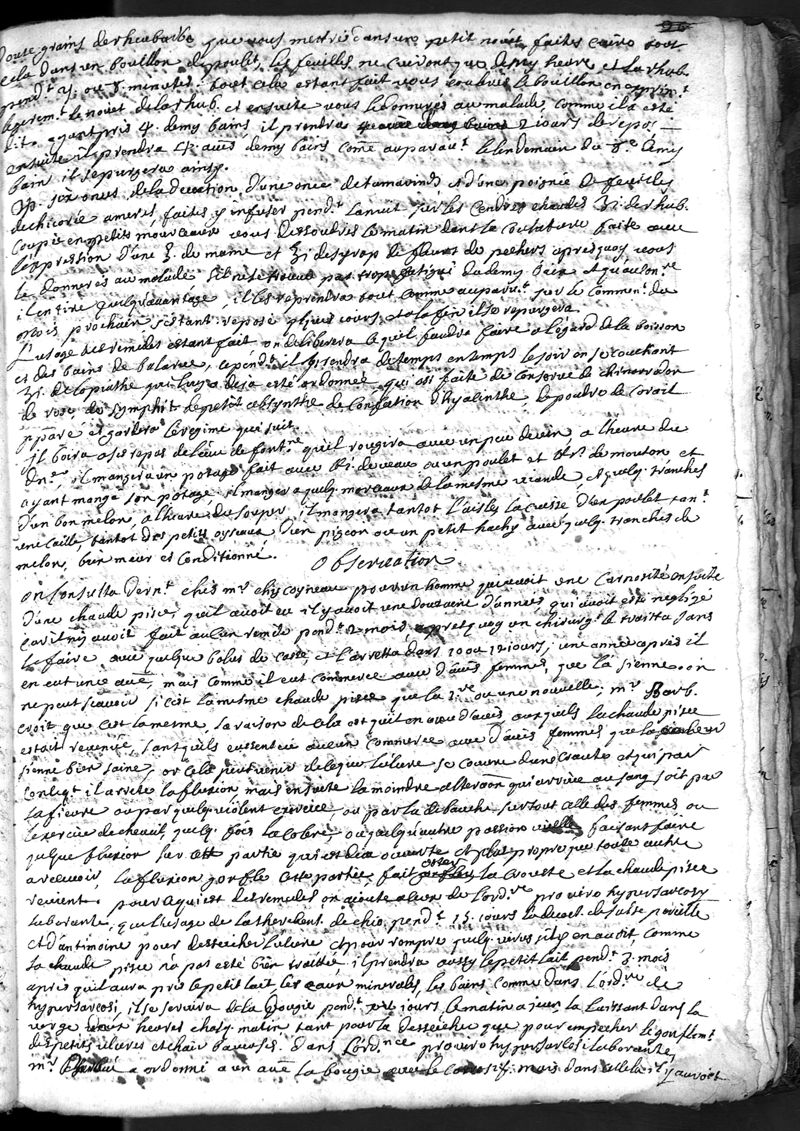 douze grains de rhubarbe que vous mettrez dans un petit nouet faites cuire tout
cela dans un bouillon de poulet, les feuilles ne cuiront que demy heure et la rhub.
pendt 7. ou 8 minutes: tout cela estant fait vous coulerés le bouillon en
legeremt le nouet de la rhub. et ensuite vous le donnerés au malade, comme il a esté
dit. ayant pris 4. demy bains il prendra 2 iours de repos.
ensuite il prendra 4 aues demy bains come auparavat. le lendemain du 8.e demy
bain il se purgera ainsy.
six onces de la decoction d'une once de tamarinds, et d'une poignée de feuilles
de chicorée ameres, faites y infuser pendt la nuit sur les cendres chaudes de rhub.
coupée en petits morceaux vous dessoudres le matin dans la coulature faite avec
l'expression d'une de manne et de syrop de fleurs de pechers apres quoy vous
le donnerés au malade s'il ne se trouve pas trop fatigué du demy bain et qu'au
il en tire quelq avantage il les reprendra tout comme auparavt. sur le commenc. du
mois prochain s'estant reposé iours et a la fin il se repurgera.
L'usage des remedes estant fait on deliberera ce qu'il faudra faire a l'egard de la boisson
et des bains de balaruc, cependt il prendra de temps en temps le soir en se couchant
de l'opiathe qui luy a deja esté ordonnée qui est faite de conserve de
de roses, de symphit. de petit absynthe de confection d'hyalinthe, le poudre de corail
pparé et gardera le regime qui suit.
il boira a ses repas de l'eau de fontne qu'il rougira avec un peu de vin, a l'heure du
dné, il mangera un potage fait avec de veau ou un poulet et de mouton, et
ayant mangé son potage il mangera quelq morceaux de la mesme viande, et quelq tranches
d'un bon melon, a l'heure du souper il mangera tantot l'aisle, la cuisse d'un poulet tant
une caille, tantot des petits oyseaux d'un pigeon ou un petit hachy avec quelq tranches de
melon, bien meur et conditionné.
Observation
on consulta dernt chés mr chicoyneau pour un homme qui avoit une carnosité ensuite
d'une chaude pisse, qu'il avoit eu il y avoit une douzaine d'années qui avoit esté negligé
car il n'y avoit fait aucun remede pendt 2 mois apres quoy un chirurg. le traitta sans
le faire avec quelque bolus de casse, et l'arretta dans 10 ou 12 iours; une année apres il
en eut une aue, mais comme il eut commerce avec d'aues femmes, que la sienne. on
ne peut scavoir si c'est la mesme chaude pisse que la 1.re ou une nouvelle; mr Barb.
croit que c'est la mesme, sa raison de cela est qu'il en a veu d'aues auxquels la chaude pisse
estoit revenue, sans qu'ils eussent eu aucun commerce avec d'aues femmes que la
sienne bien saine, or cela peut venir de ce que l'ulcere se couvre d'une croute et qui par
conseqt il arrete la fluxion mais ensuite la moindre alteraon qui arrive au sang soit par
la fievre ou par quelq violent exercice, ou par la debauche surtout celle des femmes ou
l'exercice de cheval, quelq fois la colere ou quelqu'autre passion faisant faire
quelque fluxion sur cette partie qui est deja ouverte et plus propre que toute autre
a recevoir, la fluxion gonfle cette partie, fait crever la croute et la chaude pisse
revient. pour a quiest des remedes, on ajouta a ceux de l'ordre pro viro hypersarcosy
laborante, que l'usage de la therebent. de chio, pendt 15. iours la decoct. de salse pareille
et d'antimoine pour dessecher l'ulcere et pour rompre quelq virus s'il y en avoit, comme
la chaude pisse n'a pas esté bien traittée, il prendra aussy le petit lait pendt 2 mois
apres qu'il aura pris le petit lait, les eaux minerales, les bains comme dans l'ordre de
hypersarcosi, il se servira de la bougie pendt iours le matin a jeun la laissant dans la
verge heures chasq matin tant pour la dessecher que pour empecher le gonflemt
des petits ulceres et chair baveuse. dans l'ordnce pro viro hypersarcosi laborante,
mr a ordonné a un aue la bougie avec le mais dans celle la il y avoit